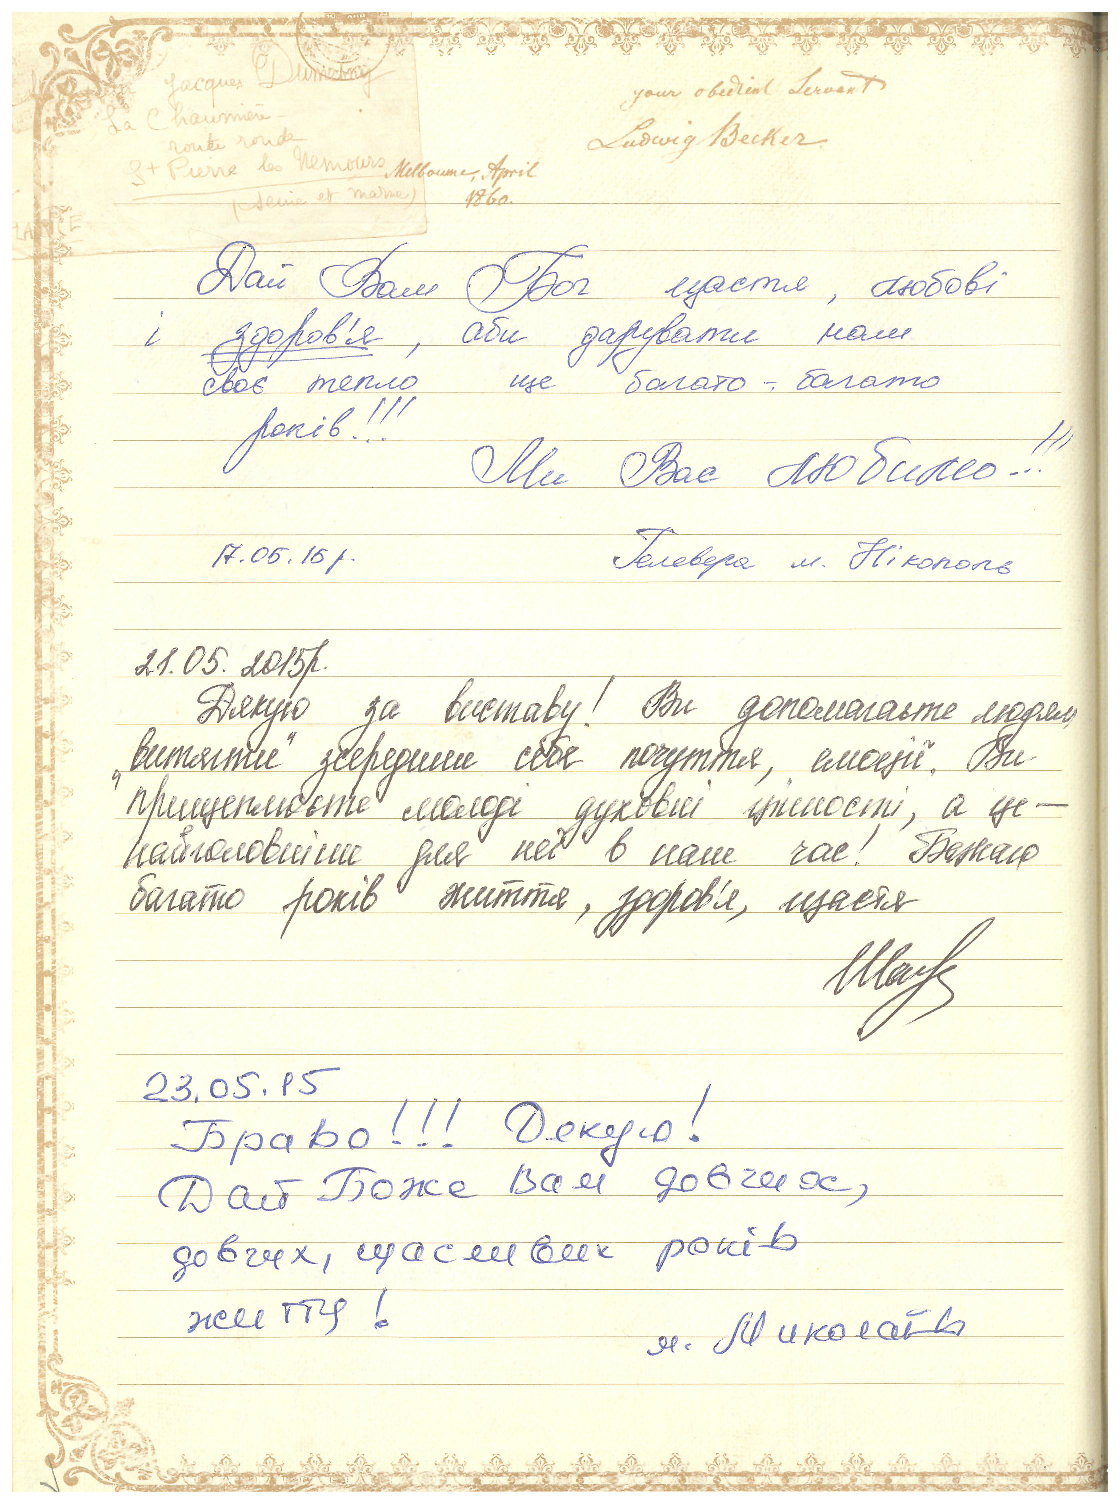 Jacques Dumesny
La Chaumière
route ronde
St Pierre les Nemours
(Seine et marne)
your obedient Servant
Ludwig Becker
Melbourne, April
1860.
Дай Вам Бог щастя, любові
і здоров'я, аби дарувати нам
своє тепло ще багато-багато
років!!!
Ми Вас любимо!!!
17.05.15р. Гелевера м. Нікополь
21.05.2015р.
Дякую за виставу! Ви допомагаєте людям
"витягти" зсередини себе почуття, емоції. Ви
прищеплюєте молоді духовні цінності, а це —
найголовніше для неї в наш час! Бажаю
багато років життя, здоров'я, щастя
23.05.15
Браво!!! Дякую!
Дай Боже Вам довгих,
довгих, щасливих років
життя!
м. Миколаїв